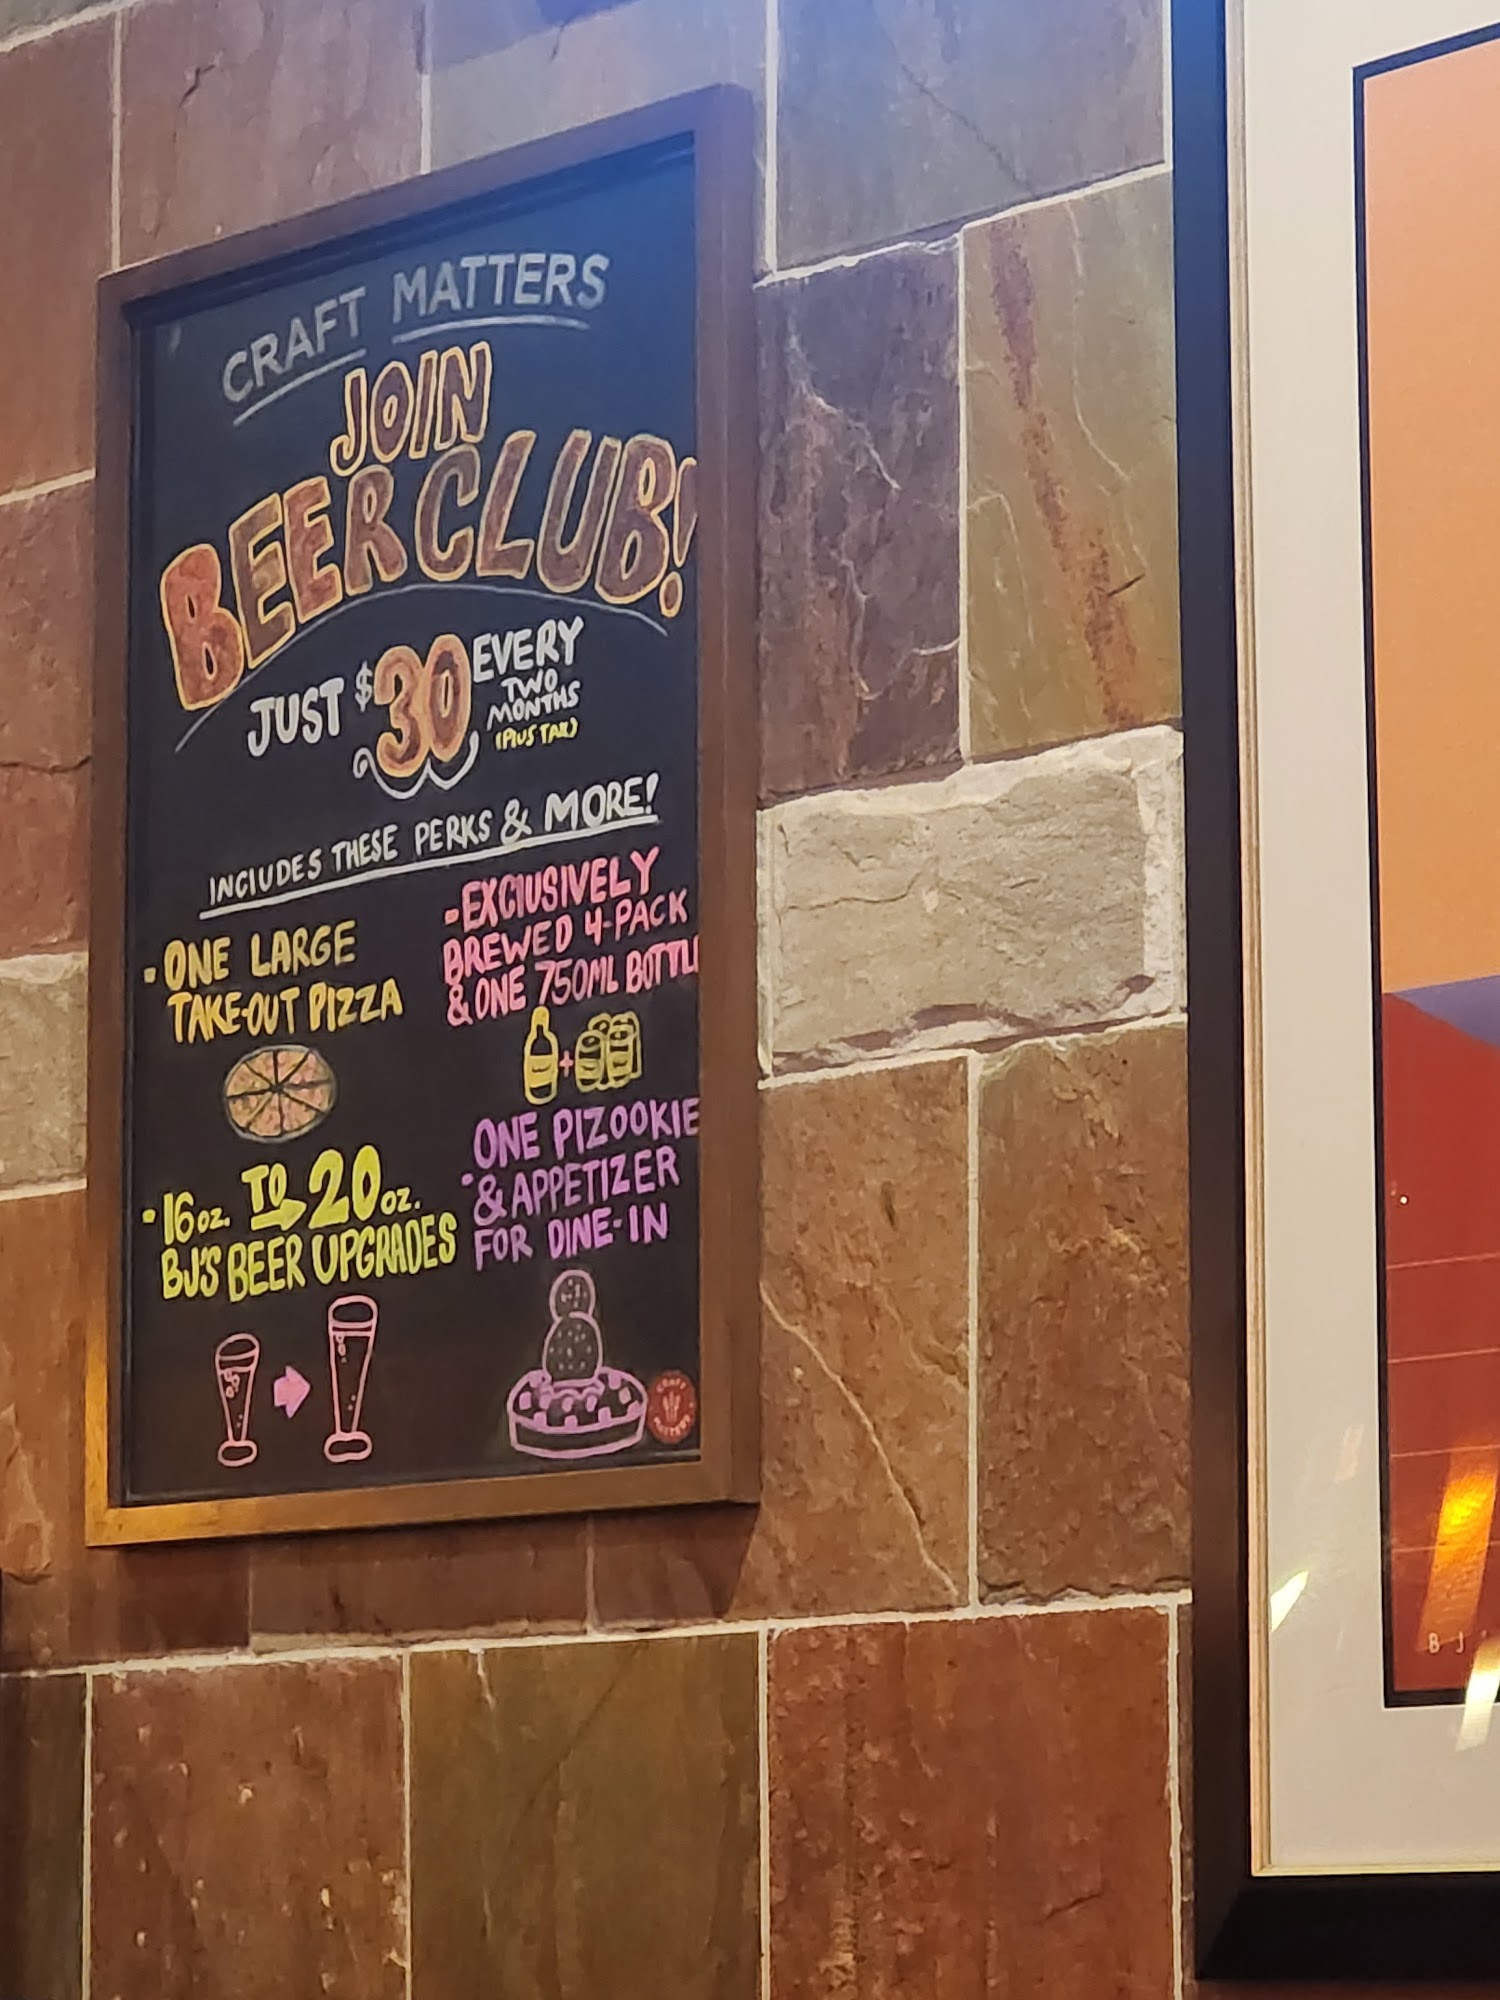 CRAFT MATTERS
JOIN
BEER CLUB!
JUST $30 EVERY
TWO
MONTHS
(PLUS TAX)
INCLUDES THESE PERKS & MORE!
- ONE LARGE
TAKE-OUT PIZZA
- EXCLUSIVELY
BREWED 4-PACK
& ONE 750ML BOTTLE
+
- 16 oz. TO 20 oz.
BJ'S BEER UPGRADES
- ONE PIZOOKIE
& APPETIZER
FOR DINE-IN
CRAFT
MATTERS
BJ'